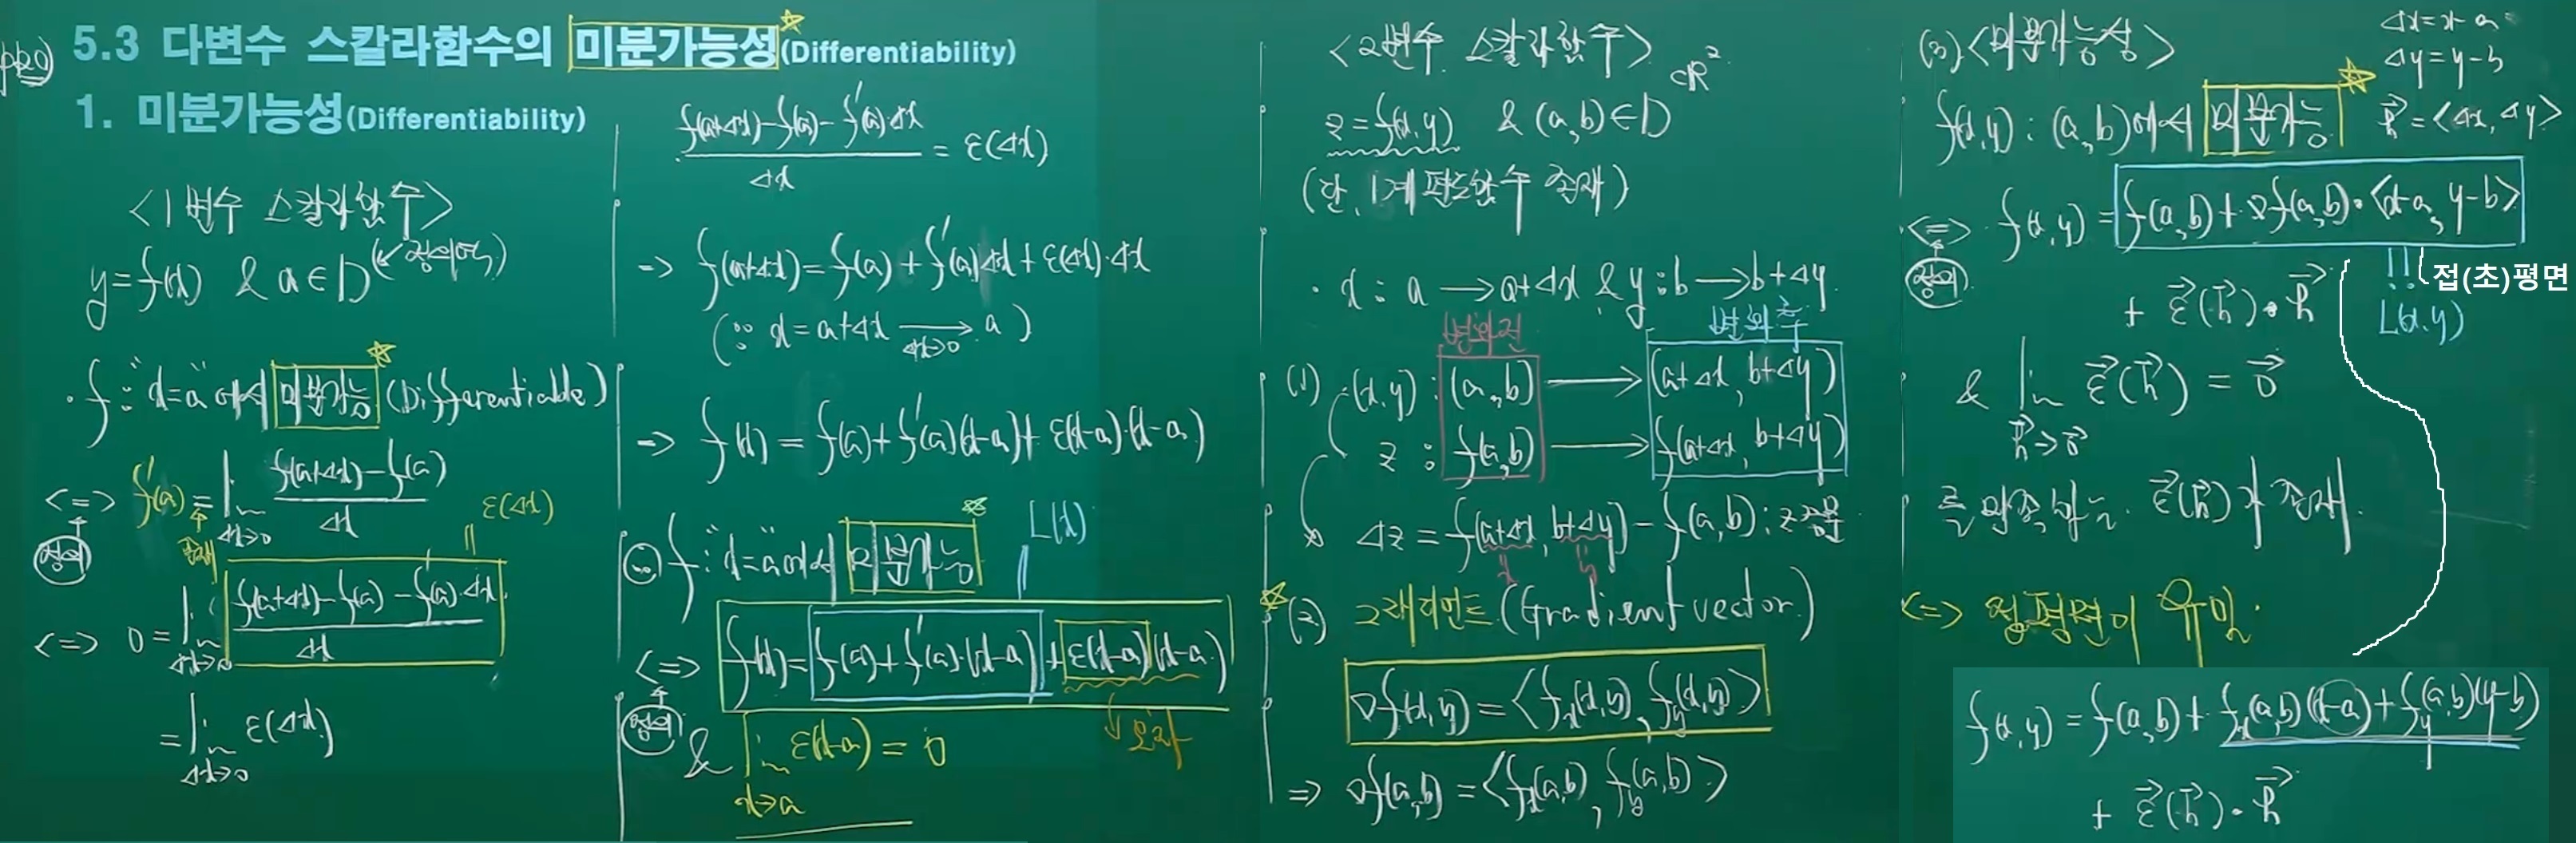 p20)
5.3 다변수 스칼라함수의 미분가능성(Differentiability)
1. 미분가능성(Differentiability)
<1변수 스칼라함수>
y=f(x) & a∈D (↙정의역)
· f : "x=a"에서 미분가능 (Differentiable)
<=> f'(a) = lim_{Δx→0} (f(a+Δx)-f(a))/Δx
정의
존재
ε(Δx)
<=> 0 = lim_{Δx→0} (f(a+Δx)-f(a)-f'(a)·Δx)/Δx
= lim_{Δx→0} ε(Δx)
(f(a+Δx)-f(a)-f'(a)·Δx)/Δx = ε(Δx)
=> f(a+Δx)=f(a)+f'(a)Δx+ε(Δx)·Δx
(∵ x=a+Δx →_{Δx→0} a)
=> f(x) = f(a)+f'(a)(x-a)+ε(x-a)·(x-a)
∴ f : "x=a"에서 미분가능
L(x)
<=> f(x)=f(a)+f'(a)·(x-a)+ε(x-a)(x-a)
정의
& lim_{x→a} ε(x-a) = 0
↓오차
<2변수 스칼라함수>
z=f(x,y) & (a,b)∈D ⊂R²
(단, 1계 편도함수 존재)
· x : a → a+Δx & y : b → b+Δy
변화전 변화후
(1) (x,y) : (a,b) → (a+Δx, b+Δy)
z : f(a,b) → f(a+Δx, b+Δy)
Δz = f(a+Δx, b+Δy) - f(a,b) : z증분
x y
(2) 그래디언트 (Gradient vector)
∇f(x,y) = <f_x(x,y), f_y(x,y)>
=> ∇f(a,b) = <f_x(a,b), f_y(a,b)>
(3) <미분가능성>
Δx=x-a
Δy=y-b
f(x,y) : (a,b)에서 미분가능
h⃗ = <Δx, Δy>
<=> f(x,y) = f(a,b)+∇f(a,b)·<x-a, y-b>
정의
접(초)평면
+ ε⃗(h⃗)·h⃗
L(x,y)
& lim_{h⃗→0⃗} ε⃗(h⃗) = 0⃗
를 만족하는 ε⃗(h⃗)가 존재.
<=> 접평면이 유일.
f(x,y) = f(a,b)+f_x(a,b)(x-a)+f_y(a,b)(y-b)
+ ε⃗(h⃗)·h⃗